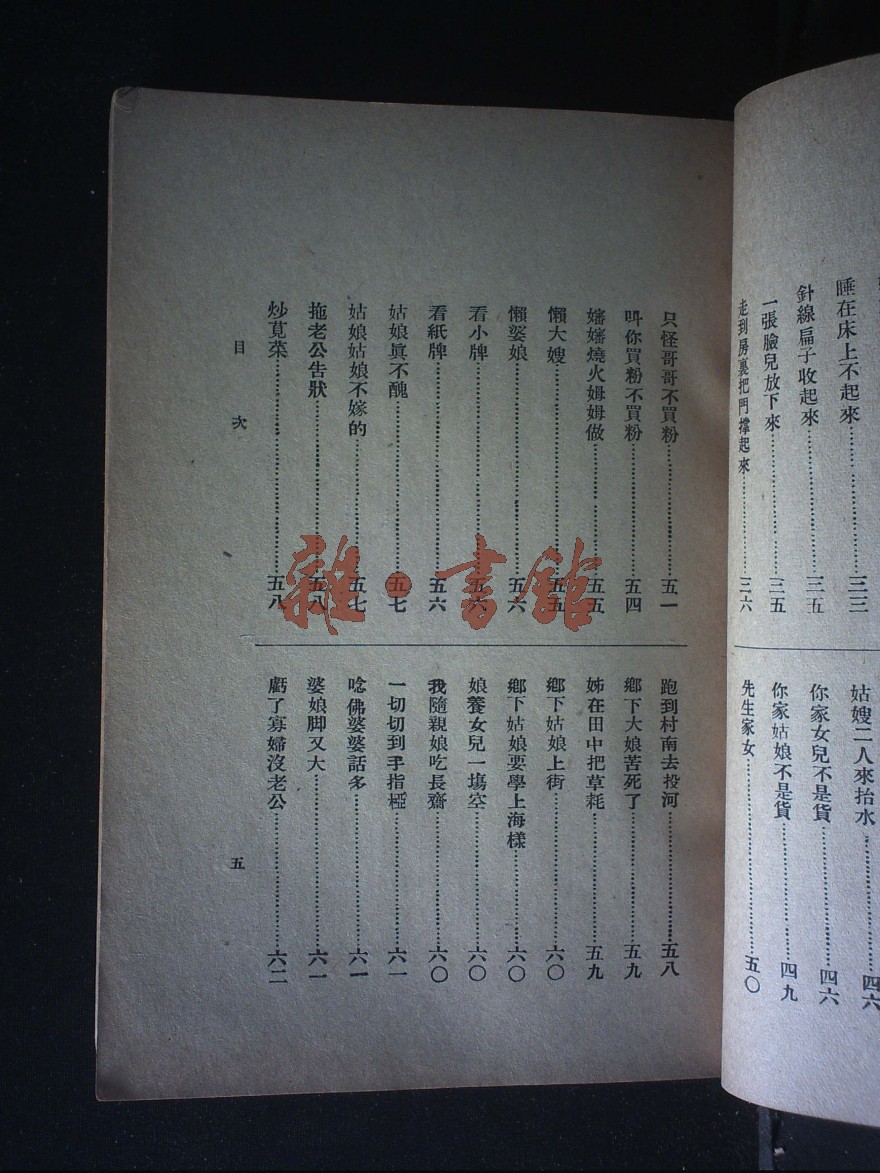 睡在床上不起來……三三
針線扁子收起來……三五
一張臉兒放下來……三五
走到房裏把門撐起來……三六
姑嫂二人來抬水……四六
你家女兒不是貨……四六
你家姑娘不是貨……四九
先生家女……五〇
只怪哥哥不買粉……五一
叫你買粉不買粉……五四
嬸嬸燒火姆姆做……五五
懶大嫂……五五
懶婆娘……五六
看小牌……五六
看紙牌……五六
姑娘眞不醜……五七
姑娘姑娘不嫁的……五七
拖老公告狀……五八
炒莧菜……五八
跑到村南去投河……五八
鄉下大娘苦死了……五九
姊在田中把草耗……五九
鄉下姑娘上街……六〇
鄉下姑娘要學上海樣……六〇
娘養女兒一塲空……六〇
我隨親娘吃長齋……六〇
一切切到手指椏……六一
唸佛婆婆話多……六一
婆娘脚又大……六一
虧了寡婦沒老公……六二
目次
五
雜·書館